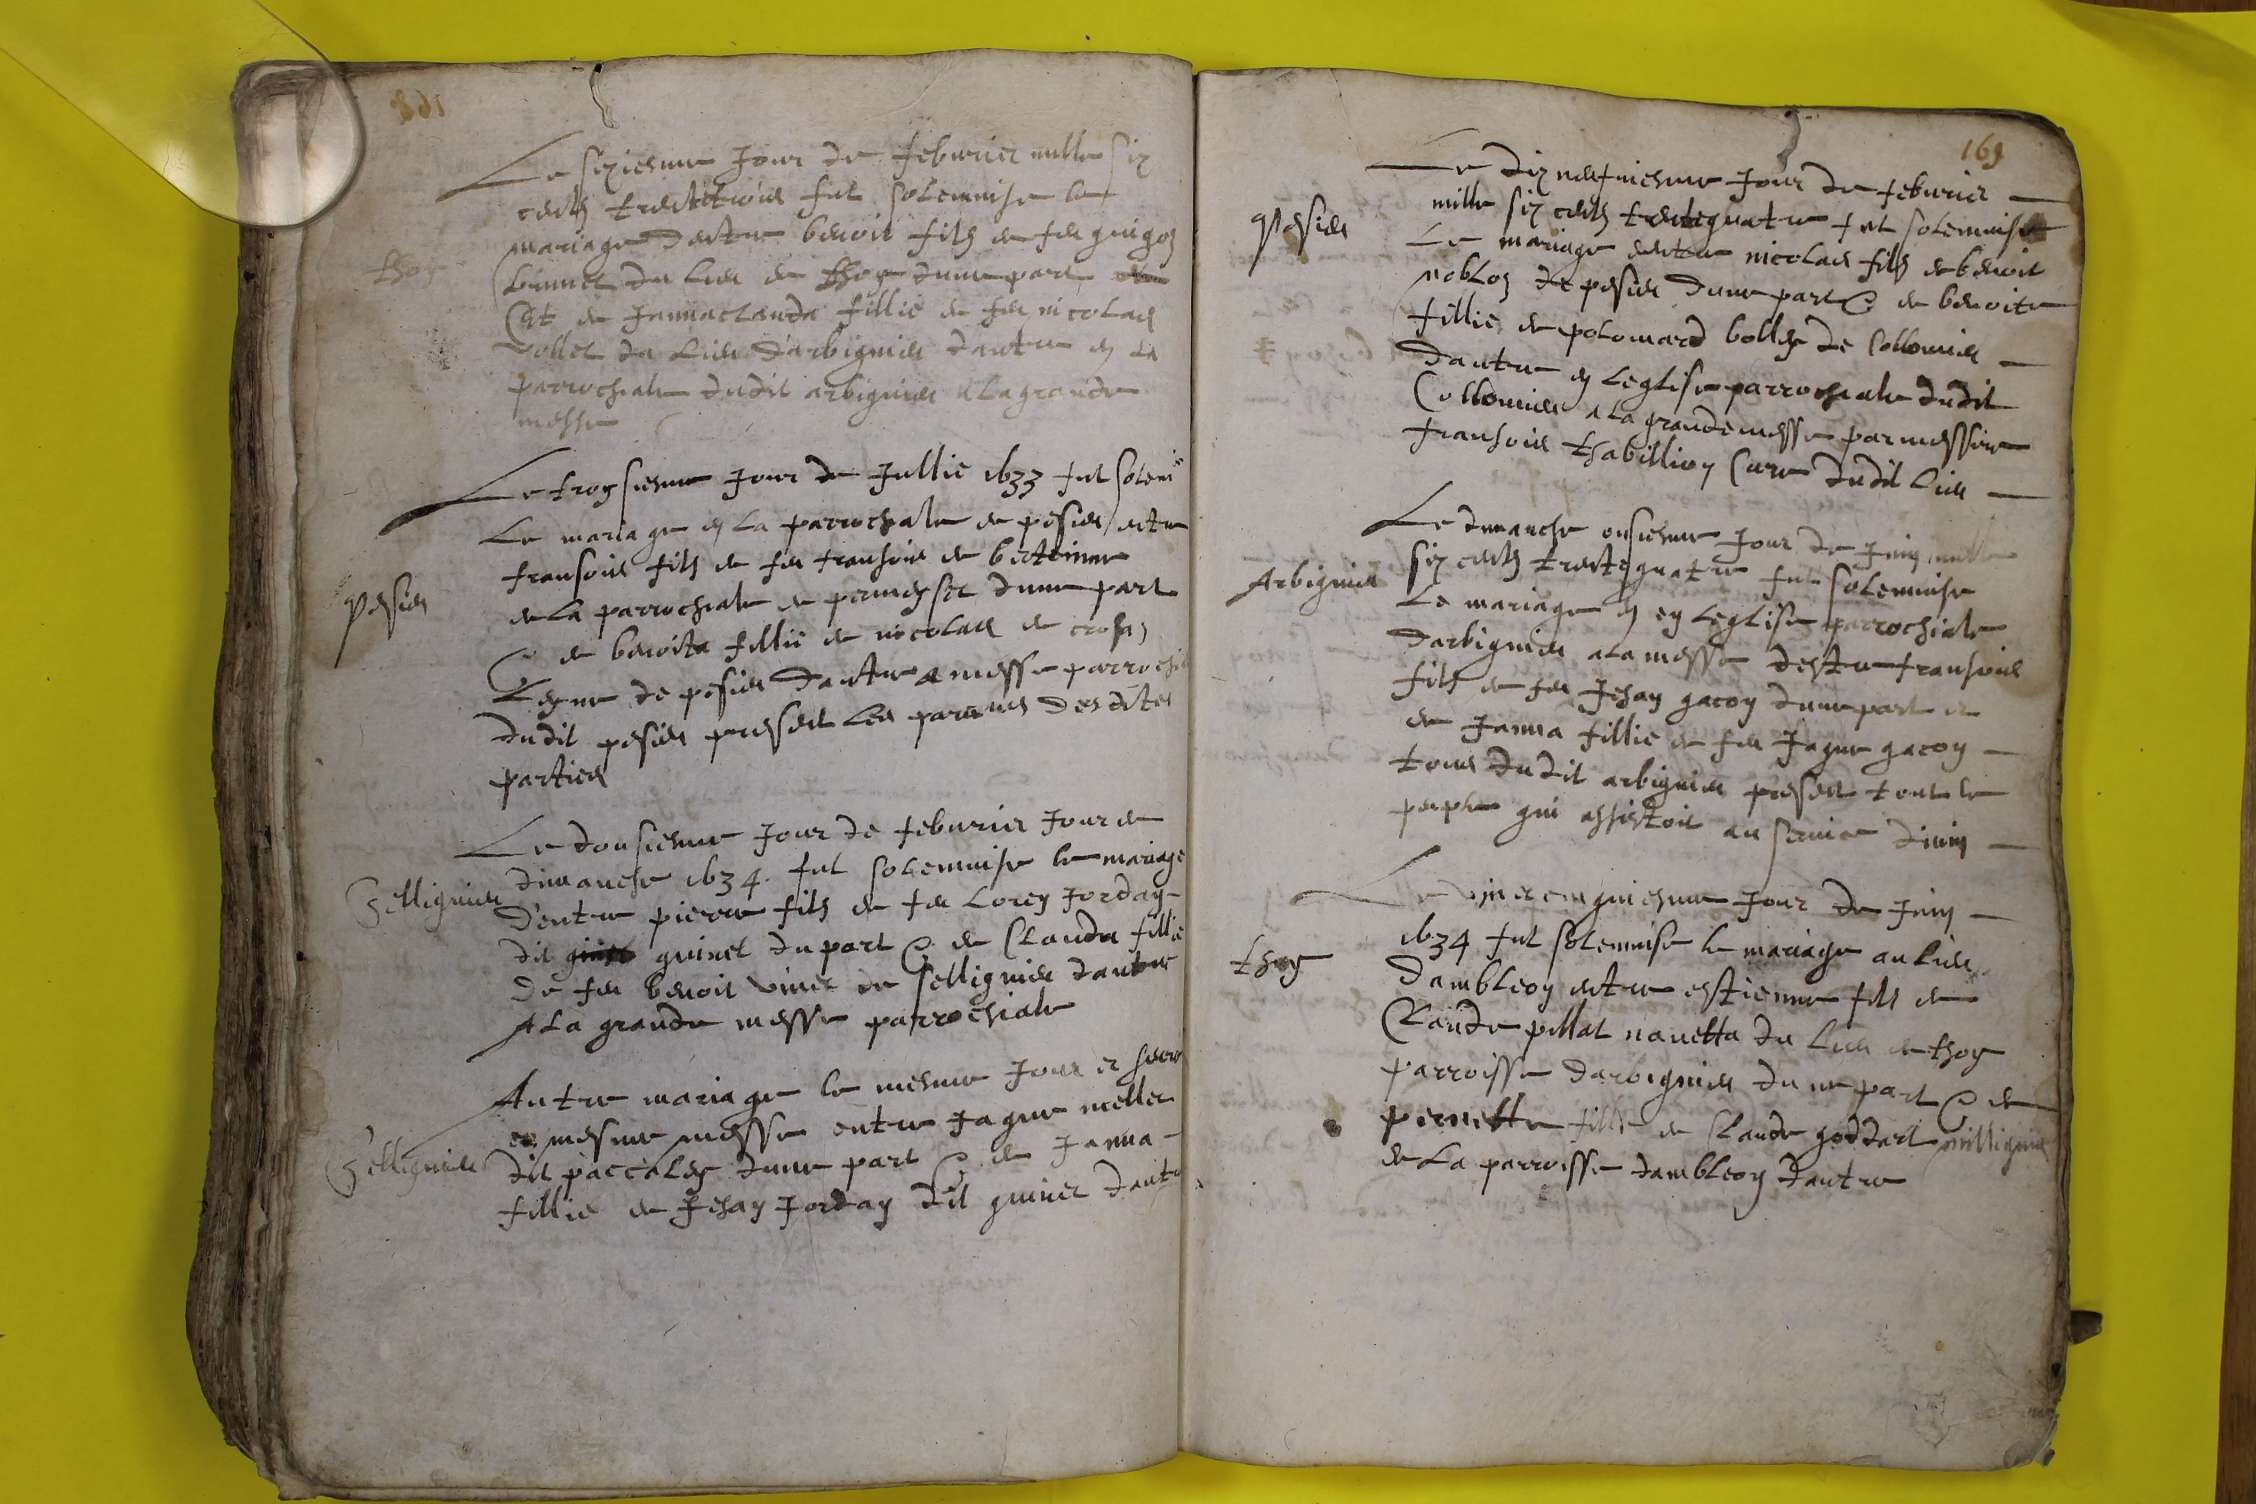 168
Le seziesme Jour de feburier mille six
cents trentetrois fut solemnise le
mariage dentre benoit fils de feu guigoz
thoy
du lieu de thoy dune part
Et de Jannaclauda fillie de feu nicolas
vollet du lieu darbignieu dautre en la
parrochiale dudit arbignieu a la grande
messe
Le troysiesme Jour de Jullie 1633 fut solemn
Le mariage en la parrochiale de pesieu entre
fransois fils de feu fransois de
pesieu
de la parrochiale de dune part
& de benoita fillie de nicolas de
de pesieu dautre a messe parrochi
dudit pesieu present les parens desdites
parties
Le dousiesme Jour de feburier Jour de
dimanche 1634 fut solemnise le mariage
Sellignieu
dentre pierre fils de feu Jorday
dit guinet du part & de Clauda fillie
de feu benoit vinet de sellignieu dautre
A la grande messe parrochiale
Autre mariage le mesme Jour et
et mesme messe entre Jaque mellet
Sellignieu
dit dune part & de Janna
fillie de Jehan Jorday dit guinet dautre
169
Le dix neufviesme Jour de feburier
mille six cents trentequatre fut solemnise
pesieu
Le mariage dentre nicolas fils de benoit
de pesieu dune part & de benoite
fillie de polomard de Collomieu
dautre en leglise parrochiale dudit
Collomieu a la grande messe par messire
fransois Cure dudit lieu
Le dimanche onsiesme Jour de Juin mille
six cents trentequatre fut solemnise
Arbignieu
Le mariage en leglise parrochiale
darbignieu a la messe dentre fransois
fils de feu Jehan gacon dune part et
de Janna fillie de feu Jaque gacon
tous dudit arbignieu present tout le
peuple qui assistoit au service divin
Le vint et cinquiesme Jour de Juin
1634 fut solemnise le mariage au lieu
thoy
dambleon entre estienne fils de
Claude pillat navetta du lieu de thoy
parroisse darbignieu dune part & de
pernette fillie de Claude goddart millignieu
de la parroisse dambleon dautre